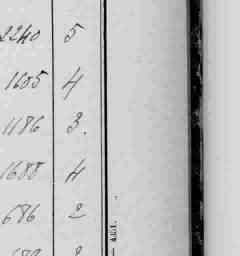 2240 5
1605 4
1186 3.
1688 4
686 2